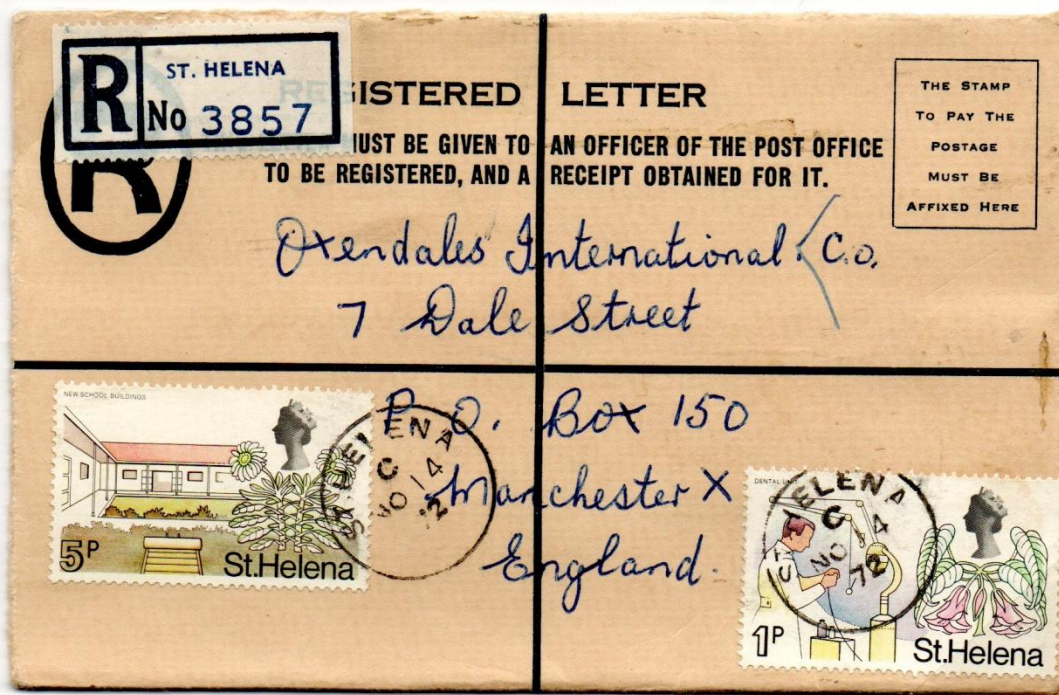 R ST. HELENA
No 3857
REGISTERED LETTER
MUST BE GIVEN TO AN OFFICER OF THE POST OFFICE
TO BE REGISTERED, AND A RECEIPT OBTAINED FOR IT.
THE STAMP
TO PAY THE
POSTAGE
MUST BE
AFFIXED HERE
R
Oxendales International Co.
7 Dale Street
P. O. Box 150
Manchester X
England.
NEW SCHOOL BUILDINGS
5P St.Helena
ST. HELENA
C
NO 14
72
DENTAL UNIT
1P St.Helena
ST. HELENA
C
NO 4
72